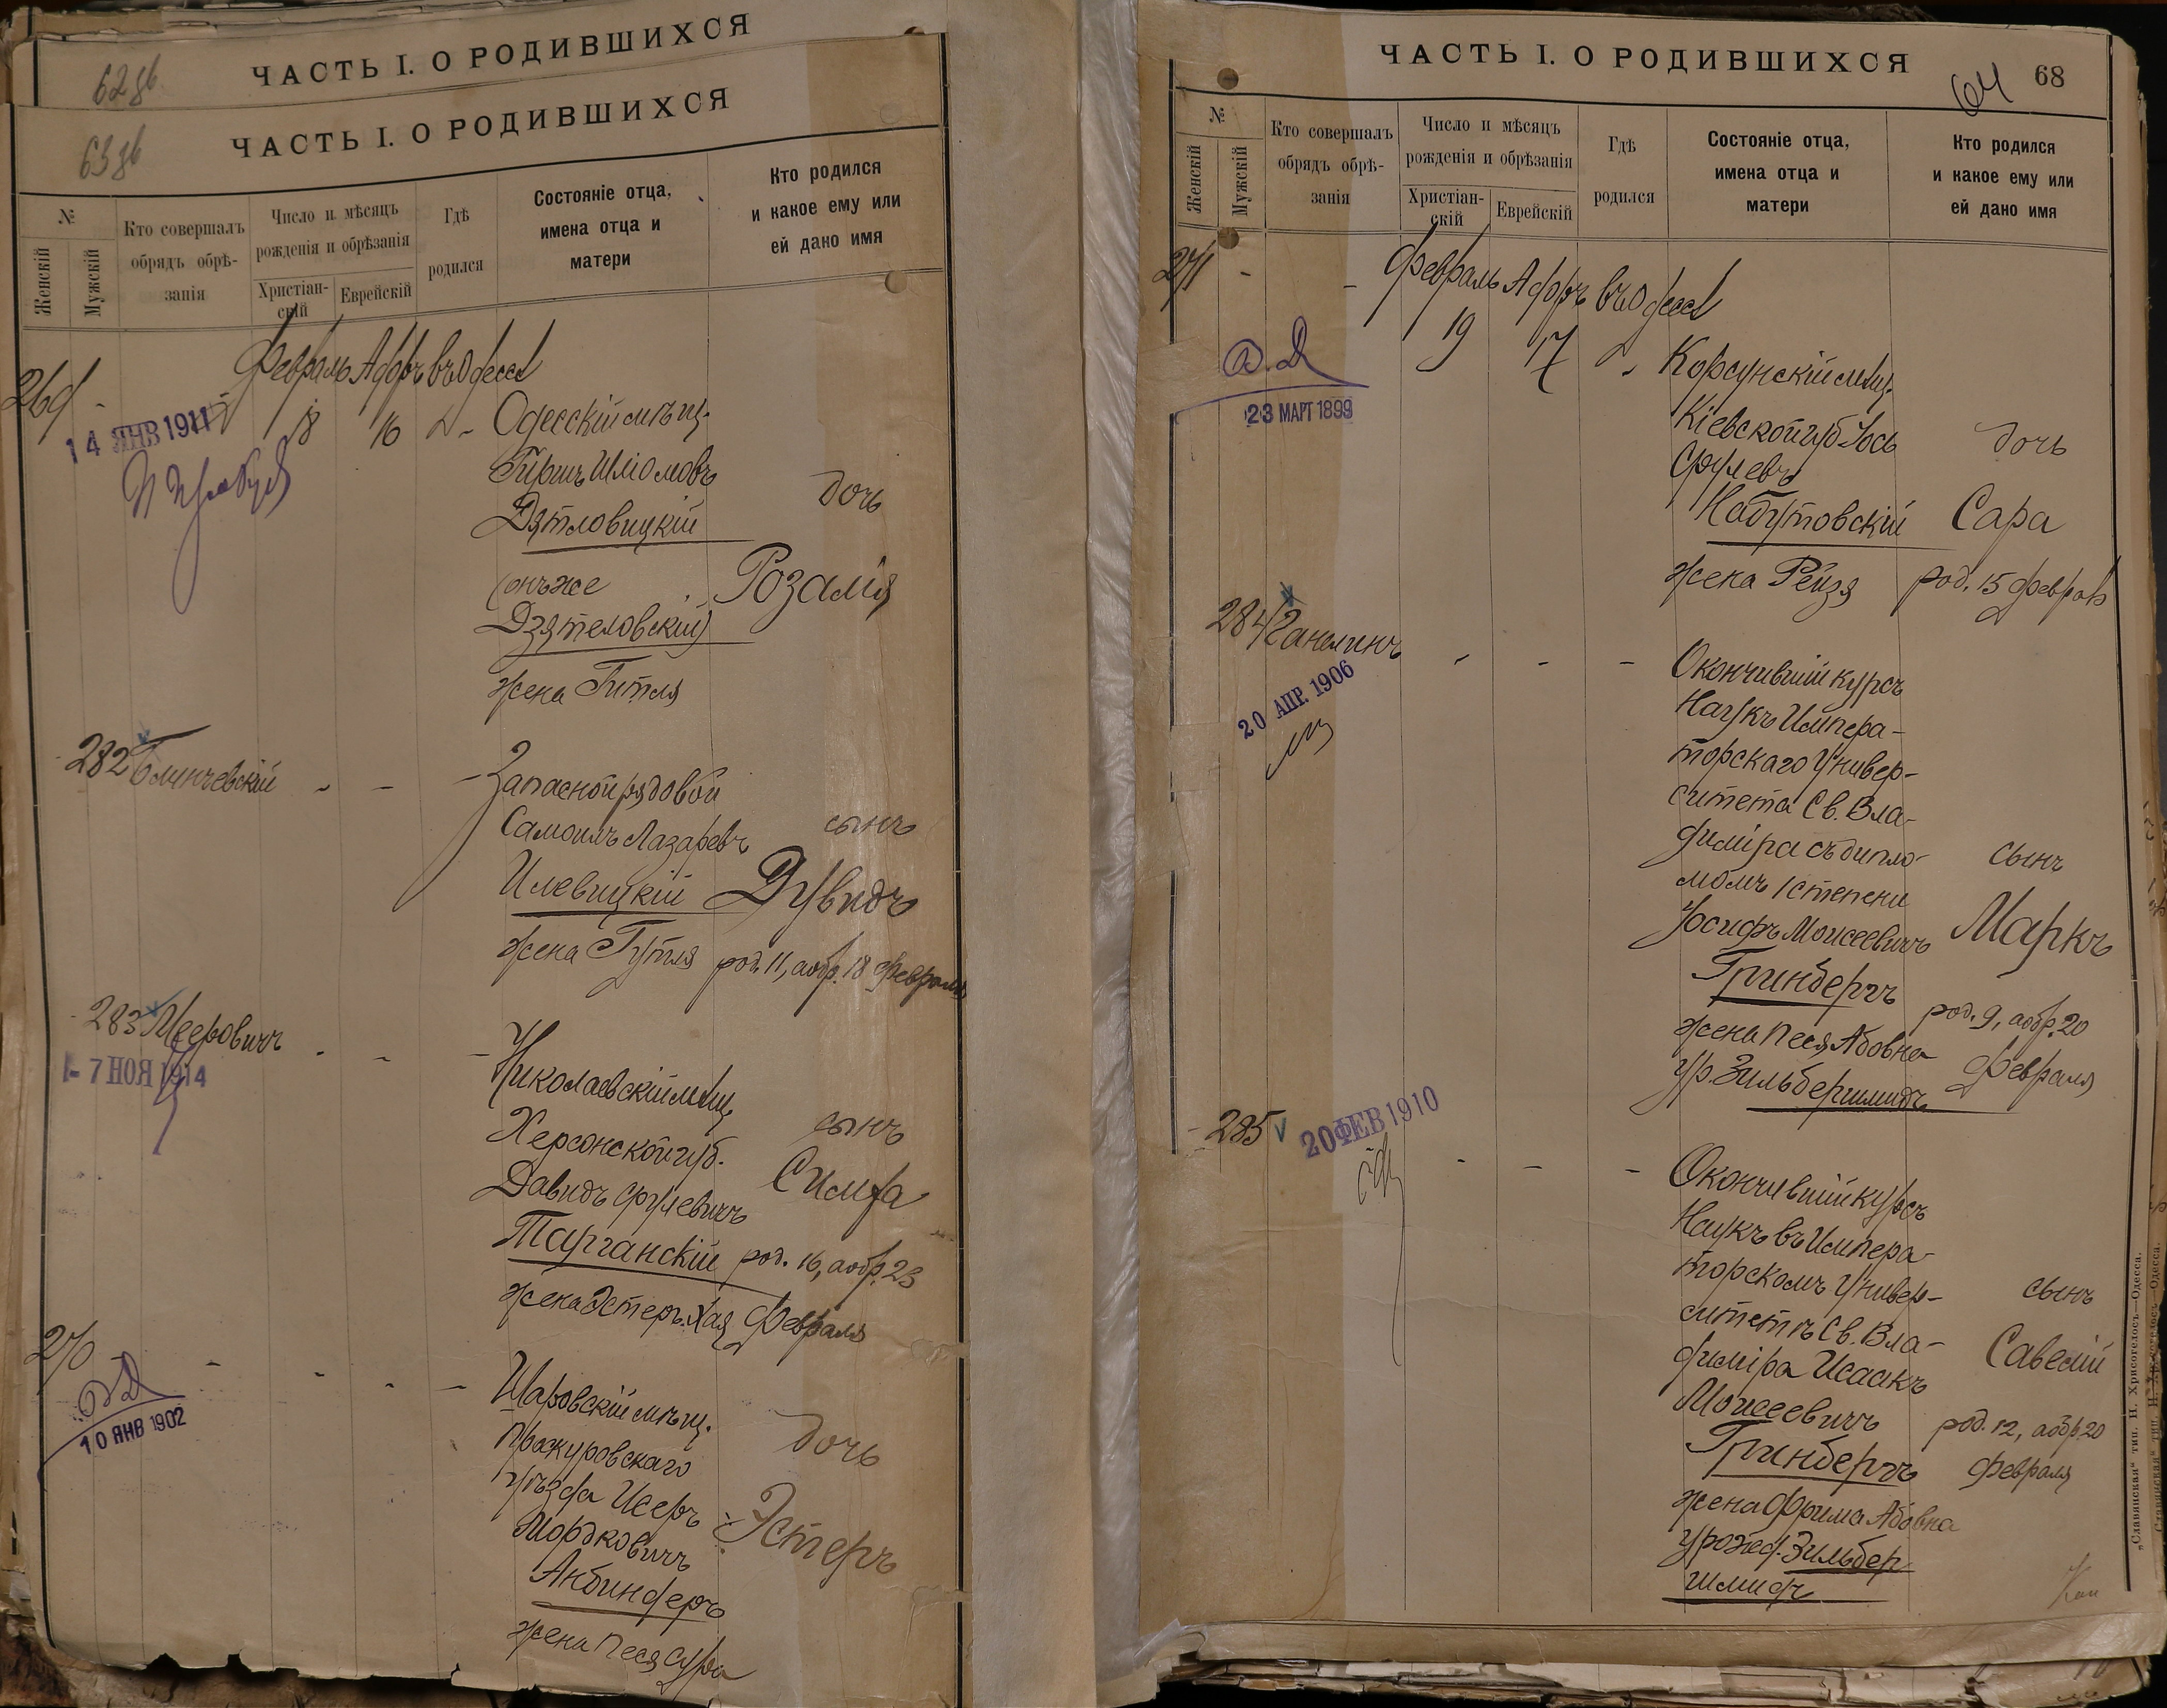 ЧАСТЬ I. О РОДИВШИХСЯ
62 об
ЧАСТЬ I. О РОДИВШИХСЯ
63 об
№
Женскій
Мужскій
Кто совершалъ
обрядъ обрѣ-
занія
Число и мѣсяцъ
рожденія и обрѣзанія
Христіан-
скій
Еврейскій
Гдѣ
родился
Состояніе отца,
имена отца и
матери
Кто родился
и какое ему или
ей дано имя
Февраль Адаръ въ Одессѣ
269 -
18 16
14 ЯНВ 1911
Одесскій мѣщ.
Гершъ Шліомовъ
Дятловицкій
(онъ же
Дзятеловскій)
жена Гитля
дочь
Розалія
282 Блинчевскій - - -
Запасной рядовой
Самоилъ Лазаревъ
Илевицкій
жена Гутля
сынъ
Дувидъ
род. 11, аобр. 18 февраля
283 Мееровичъ - - -
- 7 НОЯ 1914
Николаевскій мѣщ.
Херсонской губ.
Давидъ Срулевичъ
Тарганскій
жена Эстеръ-Хая
сынъ
Симха
род. 16, аобр. 23
Февраля
270 - - - -
10 ЯНВ 1902
Шаровскій мѣщ.
Проскуровскаго
уѣзда Исеръ
Мордковичъ
Анбиндеръ
жена Песя Сура
дочь
Эстеръ
ЧАСТЬ I. О РОДИВШИХСЯ
64
68
№
Женскій
Мужскій
Кто совершалъ
обрядъ обрѣ-
занія
Число и мѣсяцъ
рожденія и обрѣзанія
Христіан-
скій
Еврейскій
Гдѣ
родился
Состояніе отца,
имена отца и
матери
Кто родился
и какое ему или
ей дано имя
271 - -
Февраль Адаръ въ Одессѣ
19 17
23 МАРТ 1899
Корсунскій мѣщ.
Кіевской губ. Іось
Срулевъ
Набутовскій
жена Рейзя
дочь
Сара
род. 15 февраля
284 Ганелинъ - - -
20 АПР. 1906
Окончившій курсъ
Наукъ Импера-
торскаго Универ-
ситета Св. Вла-
диміра съ дипло-
момъ I степени
Іосифъ Моисеевичъ
Гринбергъ
жена Песя Абовна
ур. Зильбершмидъ
сынъ
Маркъ
род. 9, аобр. 20
Февраля
285 20 ФЕВ 1910
- - -
Окончившій курсъ
Наукъ въ Импера-
торскомъ Универ-
ситетѣ Св. Вла-
диміра Исаакъ
Моисеевичъ
Гринбергъ
жена Фрима Абовна
урожд. Зильбер
шмидъ
сынъ
Савелій
род. 12, аобр. 20
Февраля
„Славянская" тип. Н. Хрисогелосъ—Одесса.